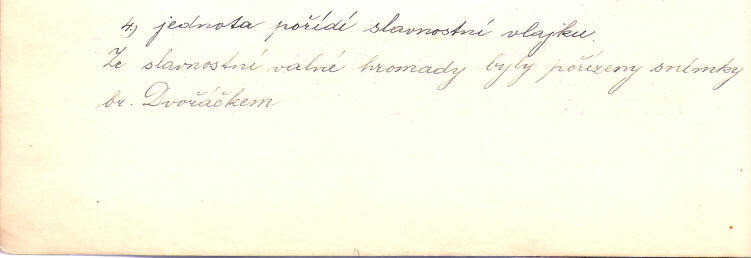 4, jednota pořídí slavnostní vlajku.
Ze slavnostní valné hromady byly pořízeny snímky
br. Dvořáčkem